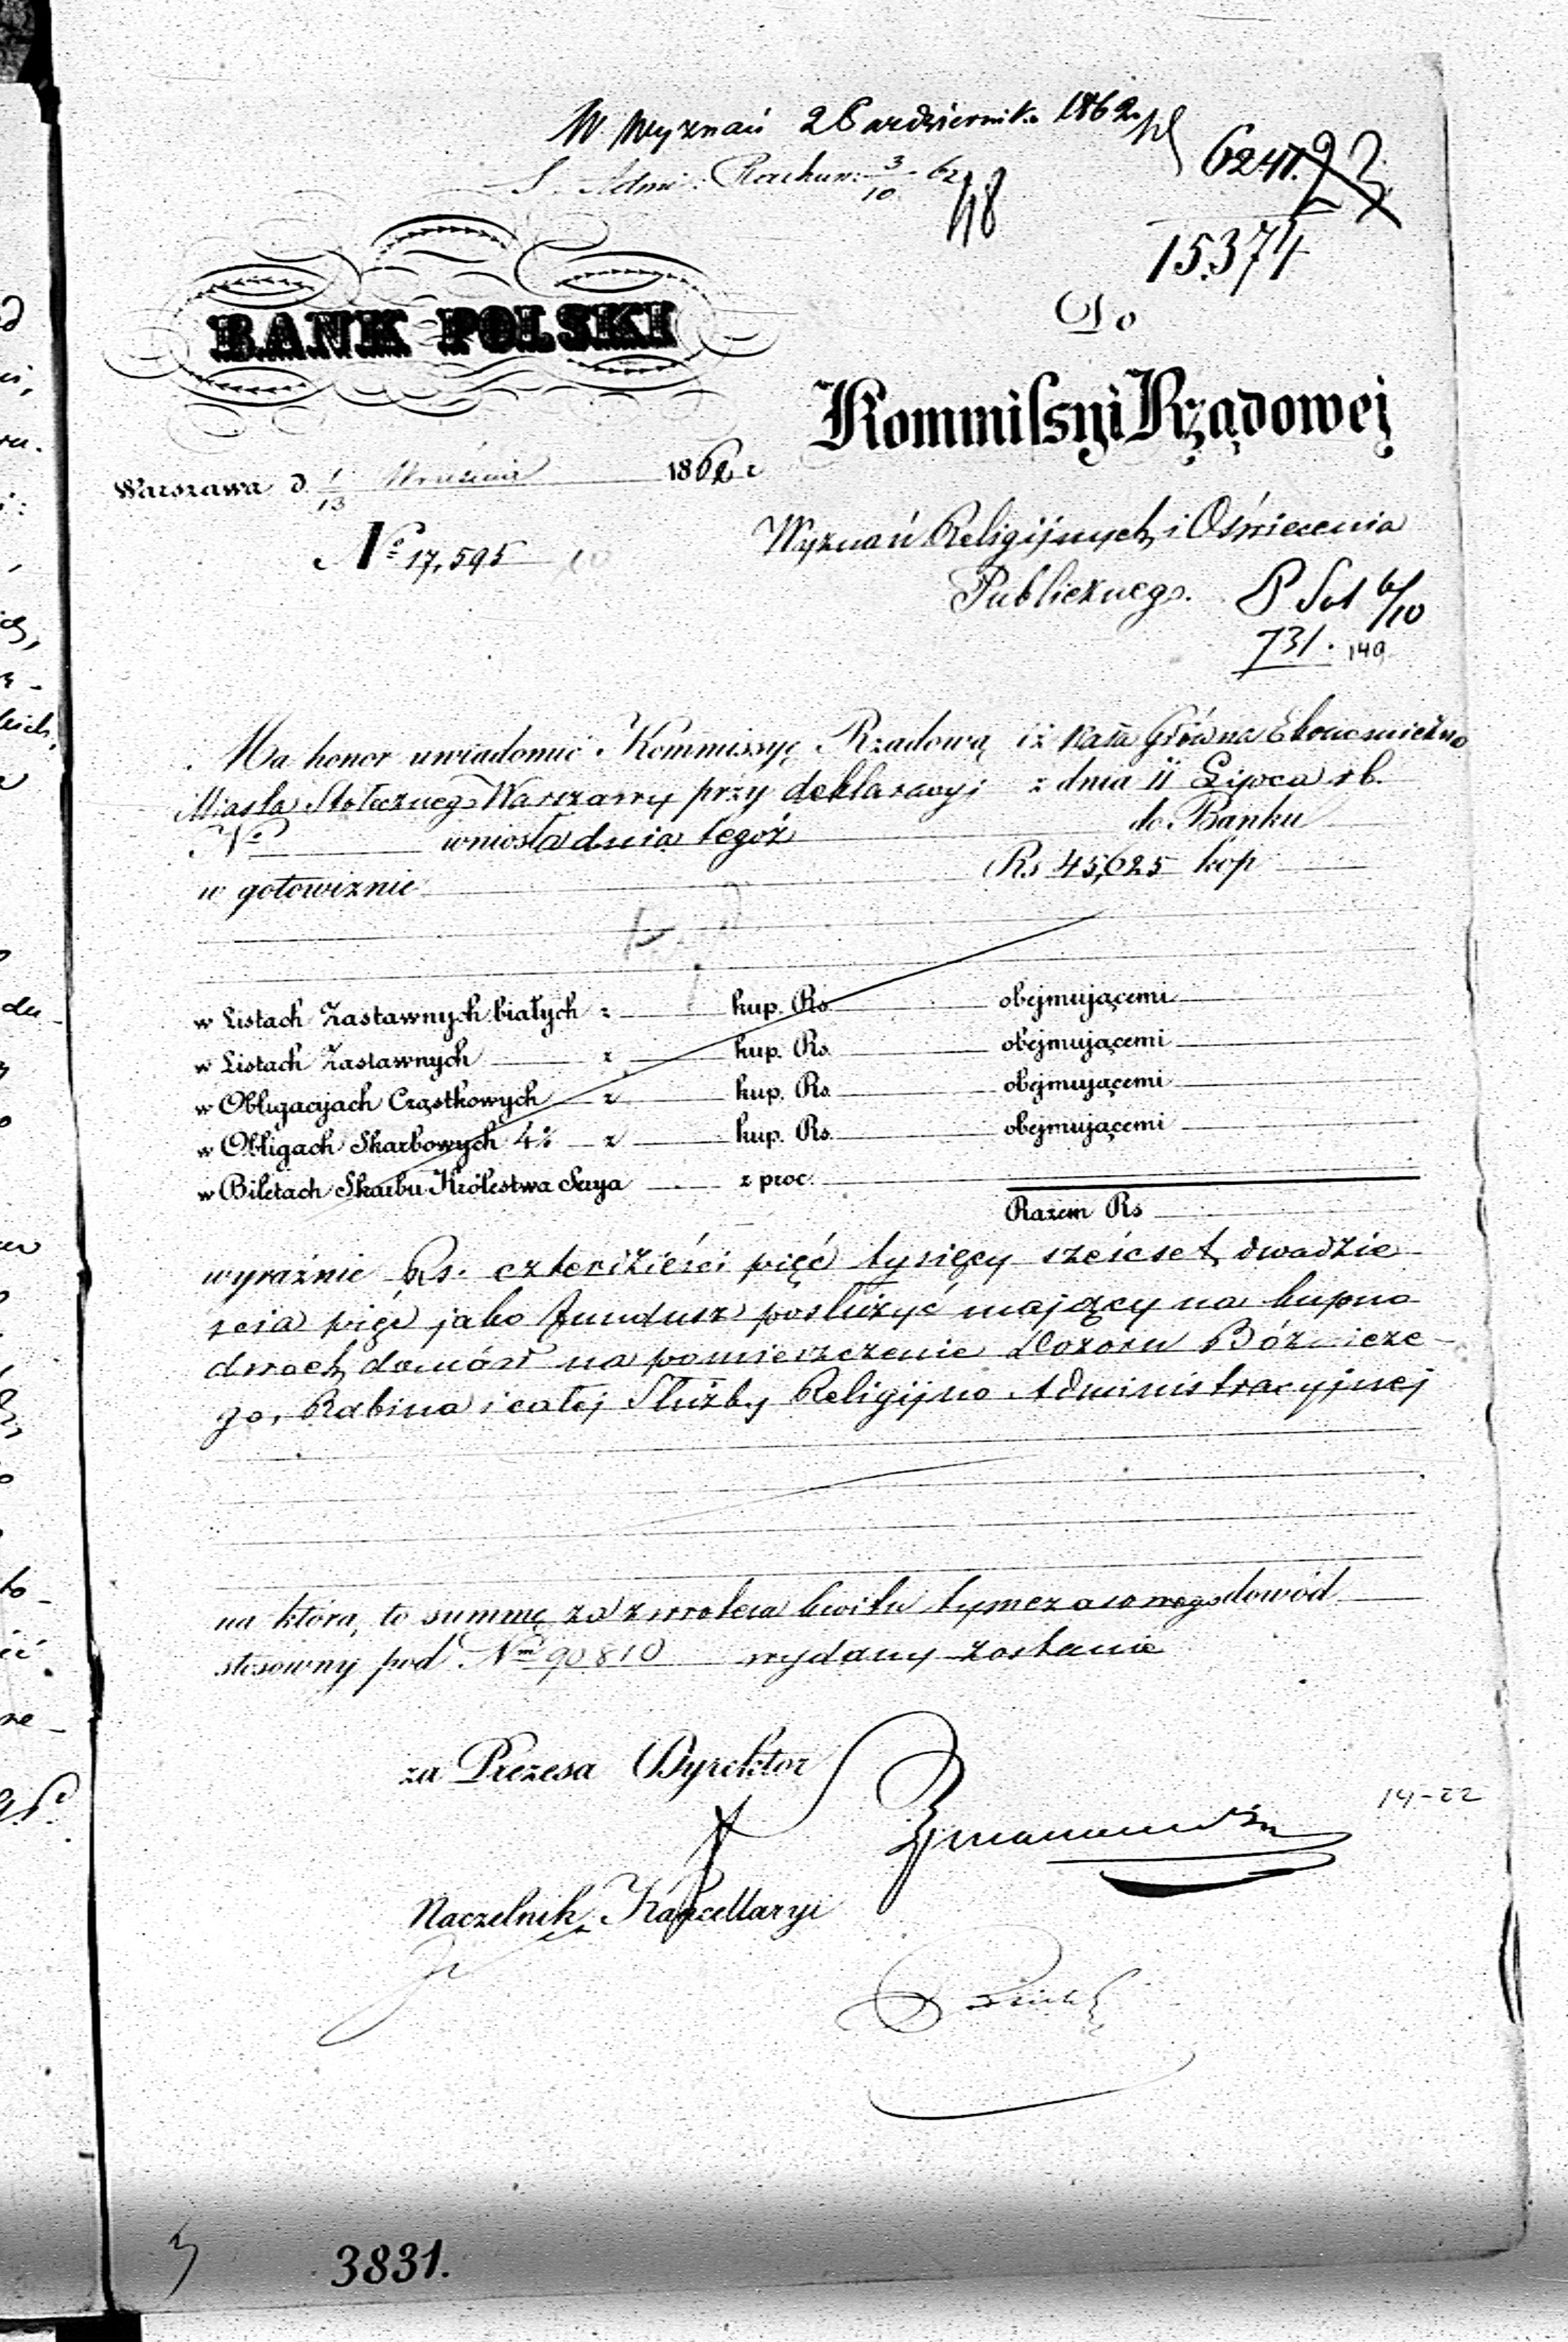 W. Wyznań 2 Października 1862.
S. Adm: Rachun: 3/10 - 62
48
6247. 23
15374
Do
BANK POLSKI
Kommissyi Rządowej
Warszawa d. 1/13 Września 1862 r
Wyznań Religijnych i Oświecenia
No 17,595
Publicznego.
6/10
731. 149
Ma honor uwiadomić Kommissyę Rządową iż Kassa Główna Ekonomiczna
Miasta Stołecznego Warszawy przy deklaracyi z dnia 11 Lipca r b.
No wniosła dnia tegoż do Banku
w gotowiznie Rs 45,625 kop
w Listach Zastawnych białych z kup. Rs obejmującemi
w Listach Zastawnych z kup. Rs. obejmującemi
w Obligacyjach Cząstkowych z kup. Rs. obejmującemi
w Obligach Skarbowych 4% z kup. Rs. obejmującemi
w Biletach Skarbu Królestwa Serya z proc.
Razem Rs
wyraźnie Rs. czterdzieści pięć tysięcy sześćset dwadzie
ścia pięć jako fundusz posłużyć mający na kupno
dwóch domów na pomieszczenie Dozoru Bóżnicze-
go, Rabina i całej Służby Religijno Administracyjnej
na którą to summę za zwrotem kwitu tymczasowego dowód
stosowny pod Nm 90810 wydany zostanie
za Prezesa Dyrektor
14-22
Naczelnik Kancellaryi
3831.